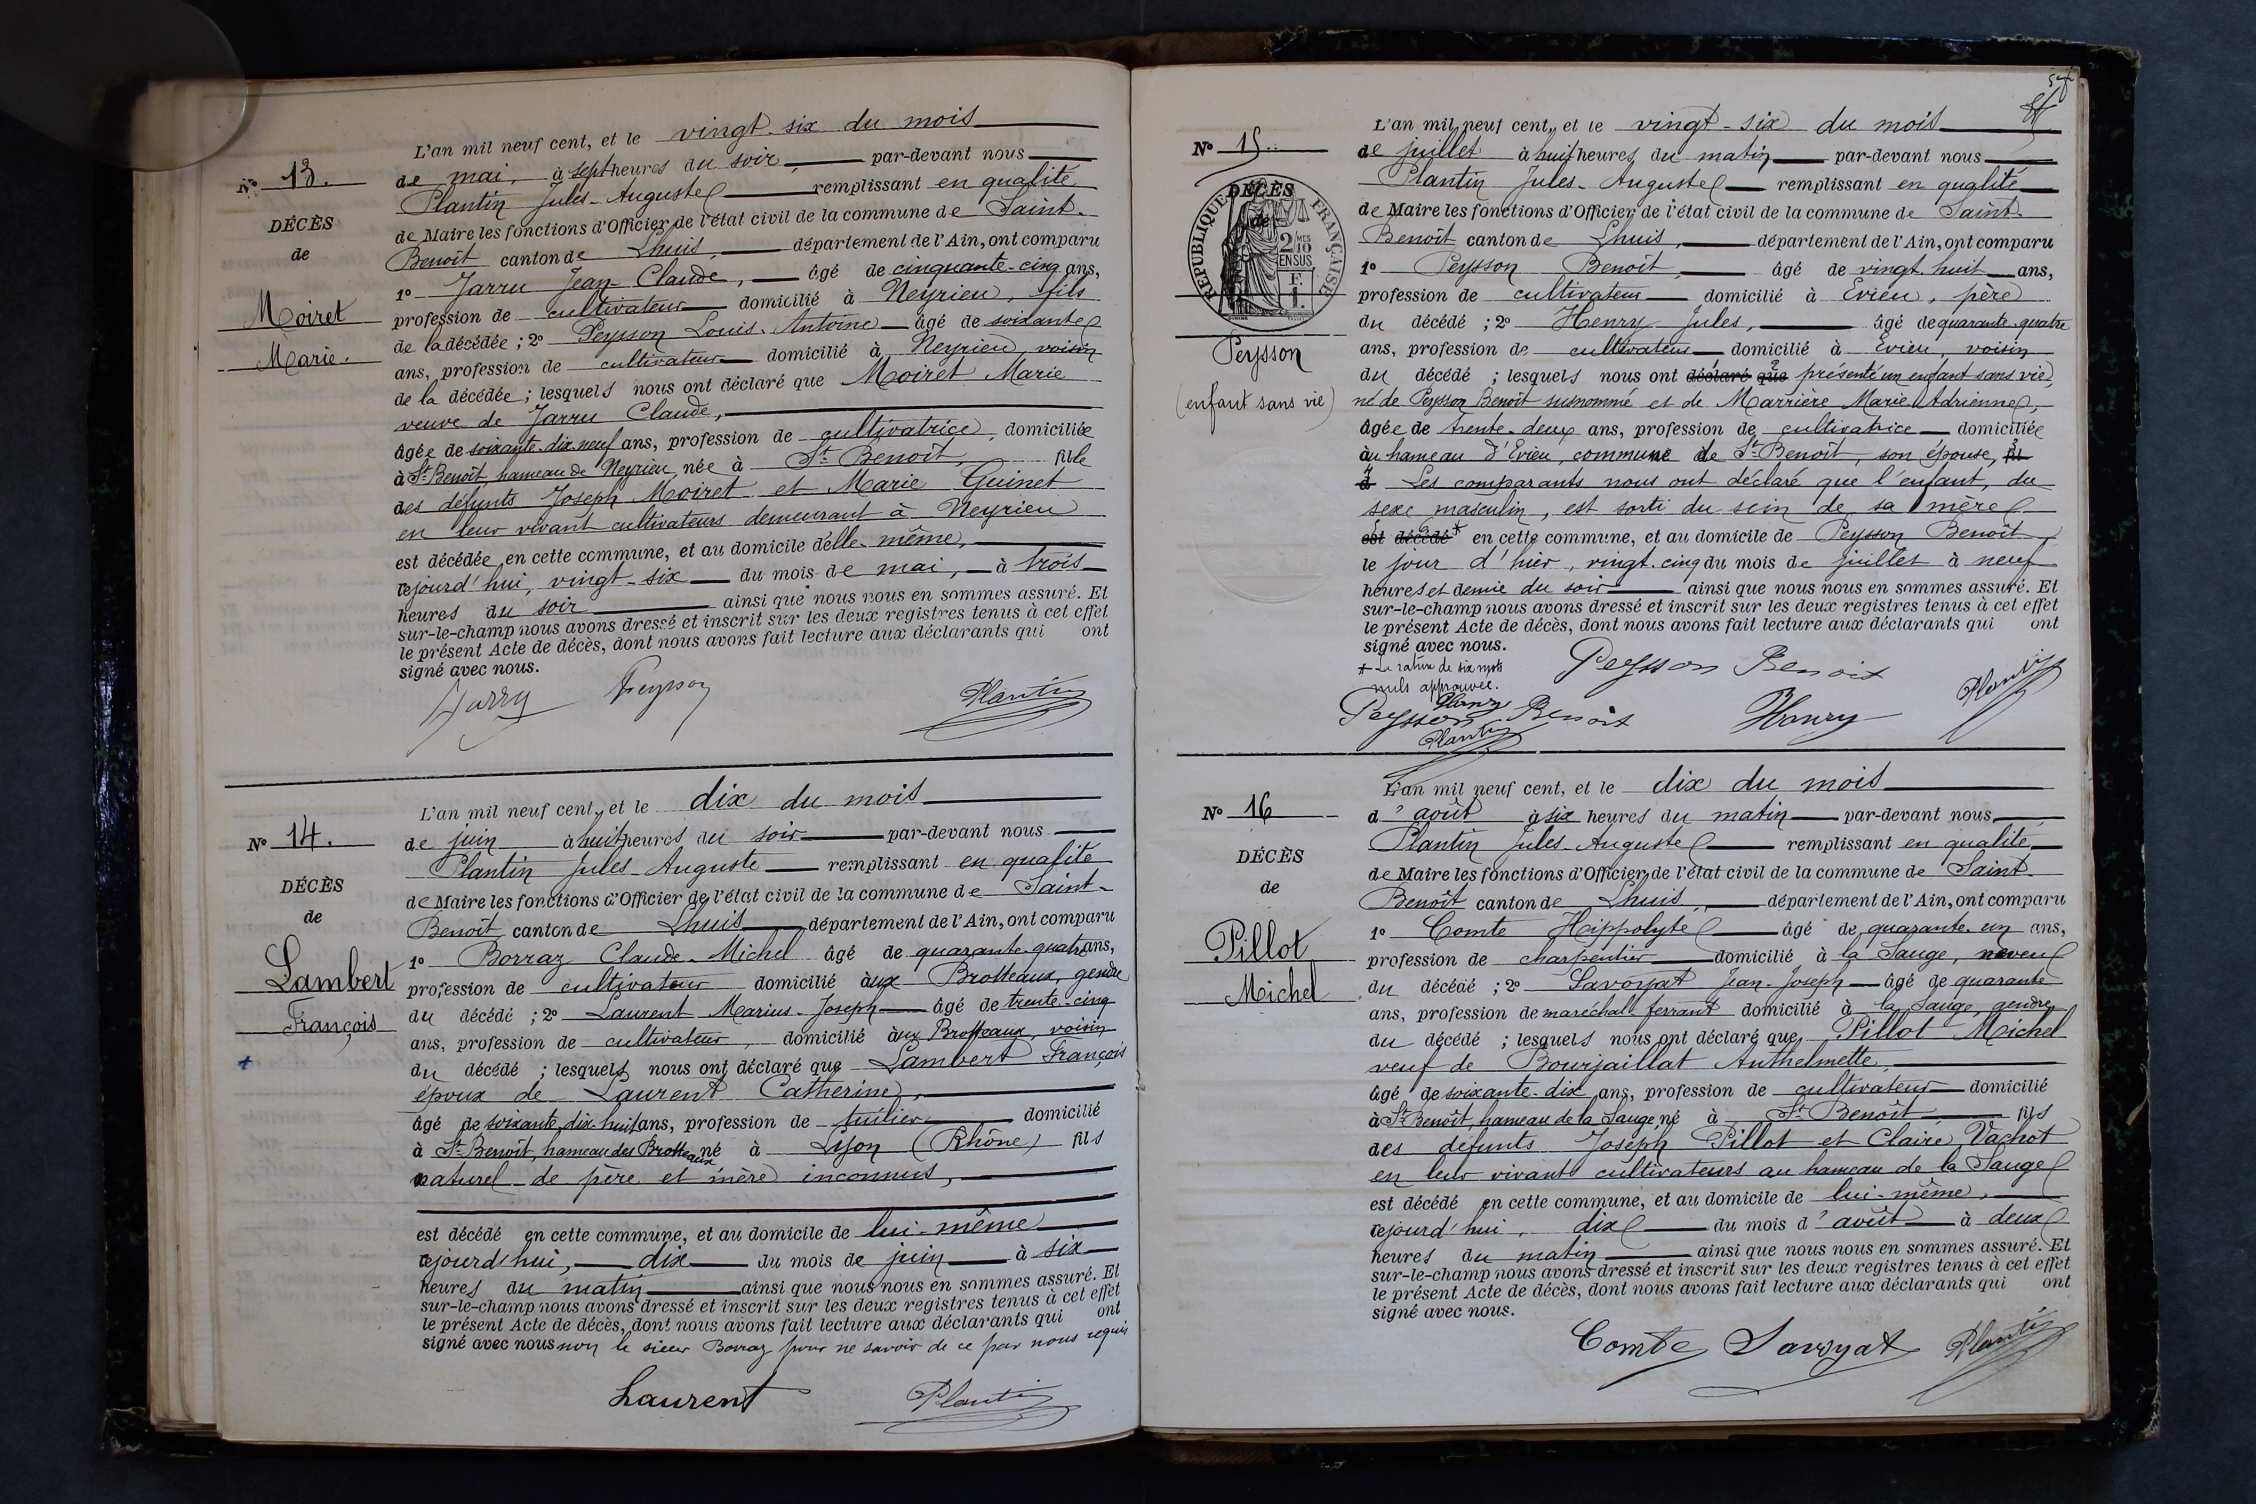 N° 13.
DÉCÈS
de
Moiret
Marie.
L'an mil neuf cent, et le vingt-six du mois
de mai, à sept heures du soir, par-devant nous
Plantin Jules-Auguste remplissant en qualité
de Maire les fonctions d'Officier de l'état civil de la commune de Saint-
Benoît canton de Lhuis, département de l'Ain, ont comparu
1° Jarru Jean Claude, âgé de cinquante-cinq ans,
profession de cultivateur domicilié à Neyrieu, fils
de la décédée; 2° Peysson Louis-Antoine âgé de soixante
ans, profession de cultivateur domicilié à Neyrieu, voisin
de la décédée; lesquels nous ont déclaré que Moiret Marie
veuve de Jarru Claude,
âgée de soixante-dix-neuf ans, profession de cultivatrice, domiciliée
à St-Benoît, hameau de Neyrieu, née à St-Benoît, fille
des défunts Joseph Moiret et Marie Guinet
en leur vivant cultivateurs demeurant à Neyrieu
est décédée en cette commune, et au domicile d'elle-même,
cejourd'hui, vingt-six du mois de mai, à trois
heures du soir ainsi que nous nous en sommes assuré. Et
sur-le-champ nous avons dressé et inscrit sur les deux registres tenus à cet effet
le présent Acte de décès, dont nous avons fait lecture aux déclarants qui ont
signé avec nous.
Jarry Peysson Plantin
N° 14.
DÉCÈS
de
Lambert
François
L'an mil neuf cent, et le dix du mois
de juin à huit heures du soir par-devant nous
Plantin Jules-Auguste remplissant en qualité
de Maire les fonctions d'Officier de l'état civil de la commune de Saint-
Benoît canton de Lhuis département de l'Ain, ont comparu
1° Borraz Claude-Michel âgé de quarante-quatre ans,
profession de cultivateur domicilié aux Brotteaux, gendre
du décédé; 2° Laurent Marius-Joseph âgé de trente-cinq
ans, profession de cultivateur, domicilié aux Brotteaux, voisin
du décédé; lesquels nous ont déclaré que Lambert François
époux de Laurent Catherine,
âgé de soixante-dix-huit ans, profession de tuilier domicilié
à St-Benoît, hameau des Brotteaux né à Lyon (Rhône) fils
naturel de père et mère inconnus,
est décédé en cette commune, et au domicile de lui-même
cejourd'hui, dix du mois de juin à six
heures du matin ainsi que nous nous en sommes assuré. Et
sur-le-champ nous avons dressé et inscrit sur les deux registres tenus à cet effet
le présent Acte de décès, dont nous avons fait lecture aux déclarants qui ont
signé avec nous non le sieur Borraz pour ne savoir de ce par nous requis
Laurent Plantin
N° 15.
DÉCÈS
de
RÉPUBLIQUE FRANÇAISE
2 MES
10
EN SUS
Peysson
(enfant sans vie)
L'an mil neuf cent, et le vingt-six du mois
de juillet à huit heures du matin par-devant nous
Plantin Jules-Auguste remplissant en qualité
de Maire les fonctions d'Officier de l'état civil de la commune de Saint-
Benoît canton de Lhuis, département de l'Ain, ont comparu
1° Peysson Benoît, âgé de vingt-huit ans,
profession de cultivateur domicilié à Evieu, père
du décédé; 2° Henry Jules, âgé de quarante-quatre
ans, profession de cultivateur domicilié à Evieu, voisin
du décédé; lesquels nous ont déclaré que présenté un enfant sans vie,
né de Peysson Benoît susnommé et de Marrière Marie Adrienne,
âgée de trente-deux ans, profession de cultivatrice domiciliée
au hameau d'Evieu, commune de St-Benoît, son épouse, fil
d Les comparants nous ont déclaré que l'enfant, du
sexe masculin, est sorti du sein de sa mère
est décédé* en cette commune, et au domicile de Peysson Benoît
le jour d'hier, vingt-cinq du mois de juillet à neuf
heures et demie du soir ainsi que nous nous en sommes assuré. Et
sur-le-champ nous avons dressé et inscrit sur les deux registres tenus à cet effet
le présent Acte de décès, dont nous avons fait lecture aux déclarants qui ont
signé avec nous.
* La rature de six mots
nuls approuvée.
Peysson Benoit Plantin
Henry
Peysson Benoit Henry
Plantin
N° 16
DÉCÈS
de
Pillot
Michel
L'an mil neuf cent, et le dix du mois
d'août à six heures du matin par-devant nous
Plantin Jules Auguste remplissant en qualité
de Maire les fonctions d'Officier de l'état civil de la commune de Saint-
Benoît canton de Lhuis, département de l'Ain, ont comparu
1° Comte Hippolyte âgé de quarante-un ans,
profession de charpentier domicilié à la Sauge, neveu
du décédé; 2° Savoyat Jean-Joseph âgé de quarante
ans, profession de maréchal-ferrant domicilié à la Sauge, gendre
du décédé; lesquels nous ont déclaré que Pillot Michel
veuf de Bourjaillat Anthelmette,
âgé de soixante-dix ans, profession de cultivateur domicilié
à St-Benoît, hameau de la Sauge, né à St-Benoît fils
des défunts Joseph Pillot et Claire Vachot
en leur vivant cultivateurs au hameau de la Sauge
est décédé en cette commune, et au domicile de lui-même,
cejourd'hui, dix du mois d'août à deux
heures du matin ainsi que nous nous en sommes assuré. Et
sur-le-champ nous avons dressé et inscrit sur les deux registres tenus à cet effet
le présent Acte de décès, dont nous avons fait lecture aux déclarants qui ont
signé avec nous.
Comte Savoyat Plantin